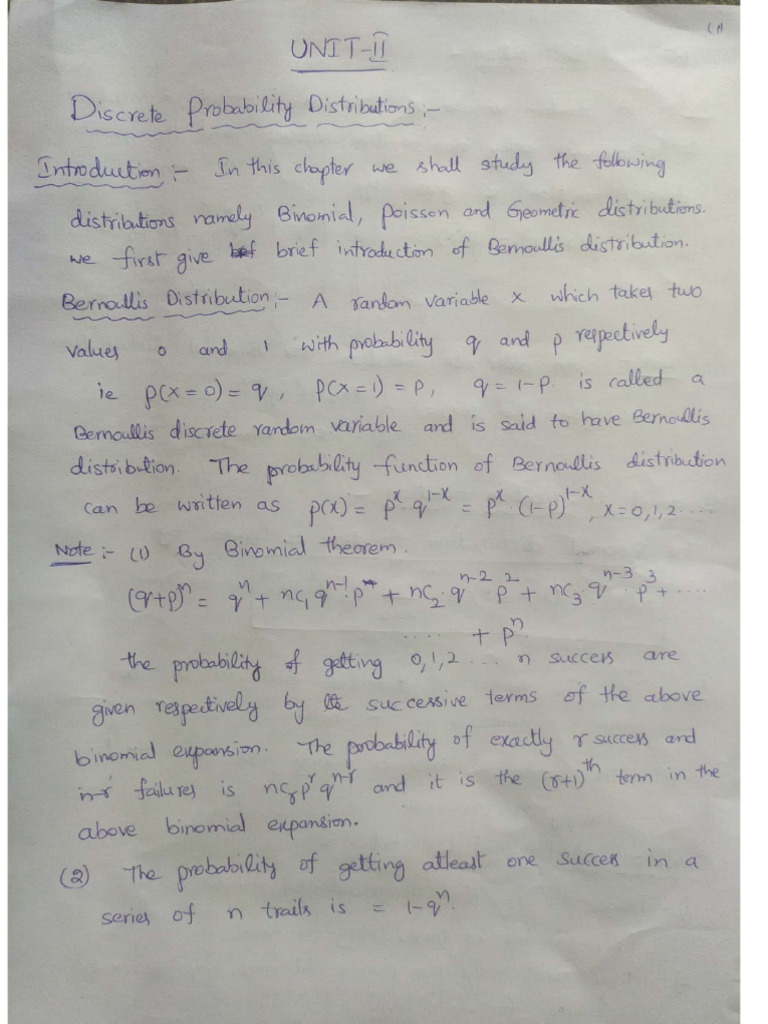 (1)
UNIT-II
Discrete Probability Distributions:-
Introduction:- In this chapter we shall study the following
distributions namely Binomial, Poisson and Geometric distributions.
we first give brief introduction of Bernoullis distribution.
Bernoullis Distribution:- A random variable x which takes two
values 0 and 1 with probability q and p respectively
ie p(x=0)=q, p(x=1)=p, q=1-p. is called a
Bernoullis discrete random variable and is said to have Bernoullis
distribution. The probability function of Bernoullis distribution
can be written as p(x)= p^x q^{1-x} = p^x.(1-p)^{1-x}, x=0,1,2....
Note:- (1) By Binomial theorem.
(q+p)^n = q^n + nc₁ q^{n-1}. p + nc₂. q^{n-2}. p^2 + nc₃. q^{n-3}. p^3 + ....
.... + p^n.
the probability of getting 0,1,2 ... n success are
given respectively by successive terms of the above
binomial expansion. The probability of exactly r success and
n-r failures is nc_r p^r q^{n-r} and it is the (r+1)^{th} term in the
above binomial expansion.
(2) The probability of getting atleast one success in a
series of n trails is = 1-q^n.